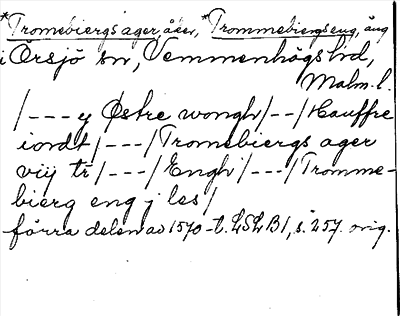 *Tromebiergs ager, åker, *Trommebiergs eng, äng
i Örsjö sn, Vemmenhögs hd,
Malm. l.
/---y Østre wongh/--/Hauffre
iordt/---/Tromebiergs ager
viij tr/---/Engh/---/Tromme-
bierg eng j les/
förra delen av 1570-t. LSLB1, s. 257. orig.